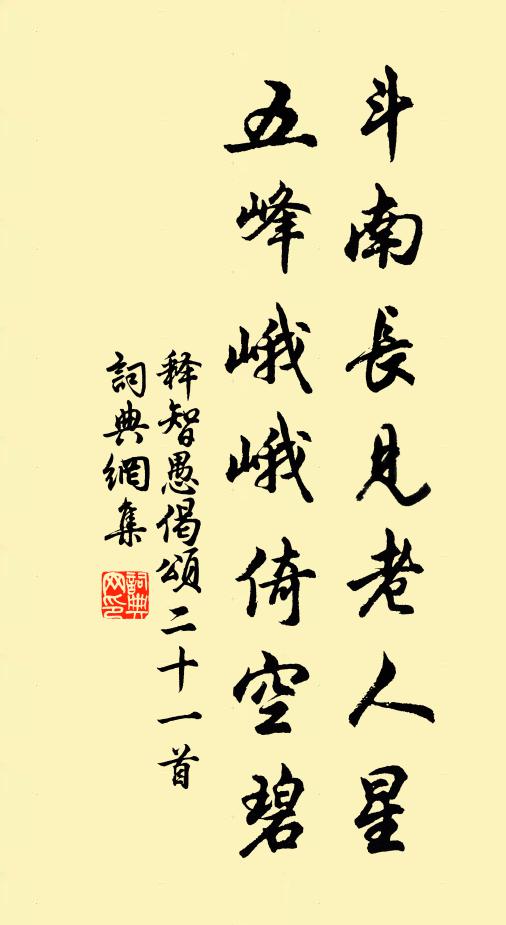 斗南長見老人星
五峰峨峨倚空碧
释智愚偈頌二十一首
詞典網集
詞典网印